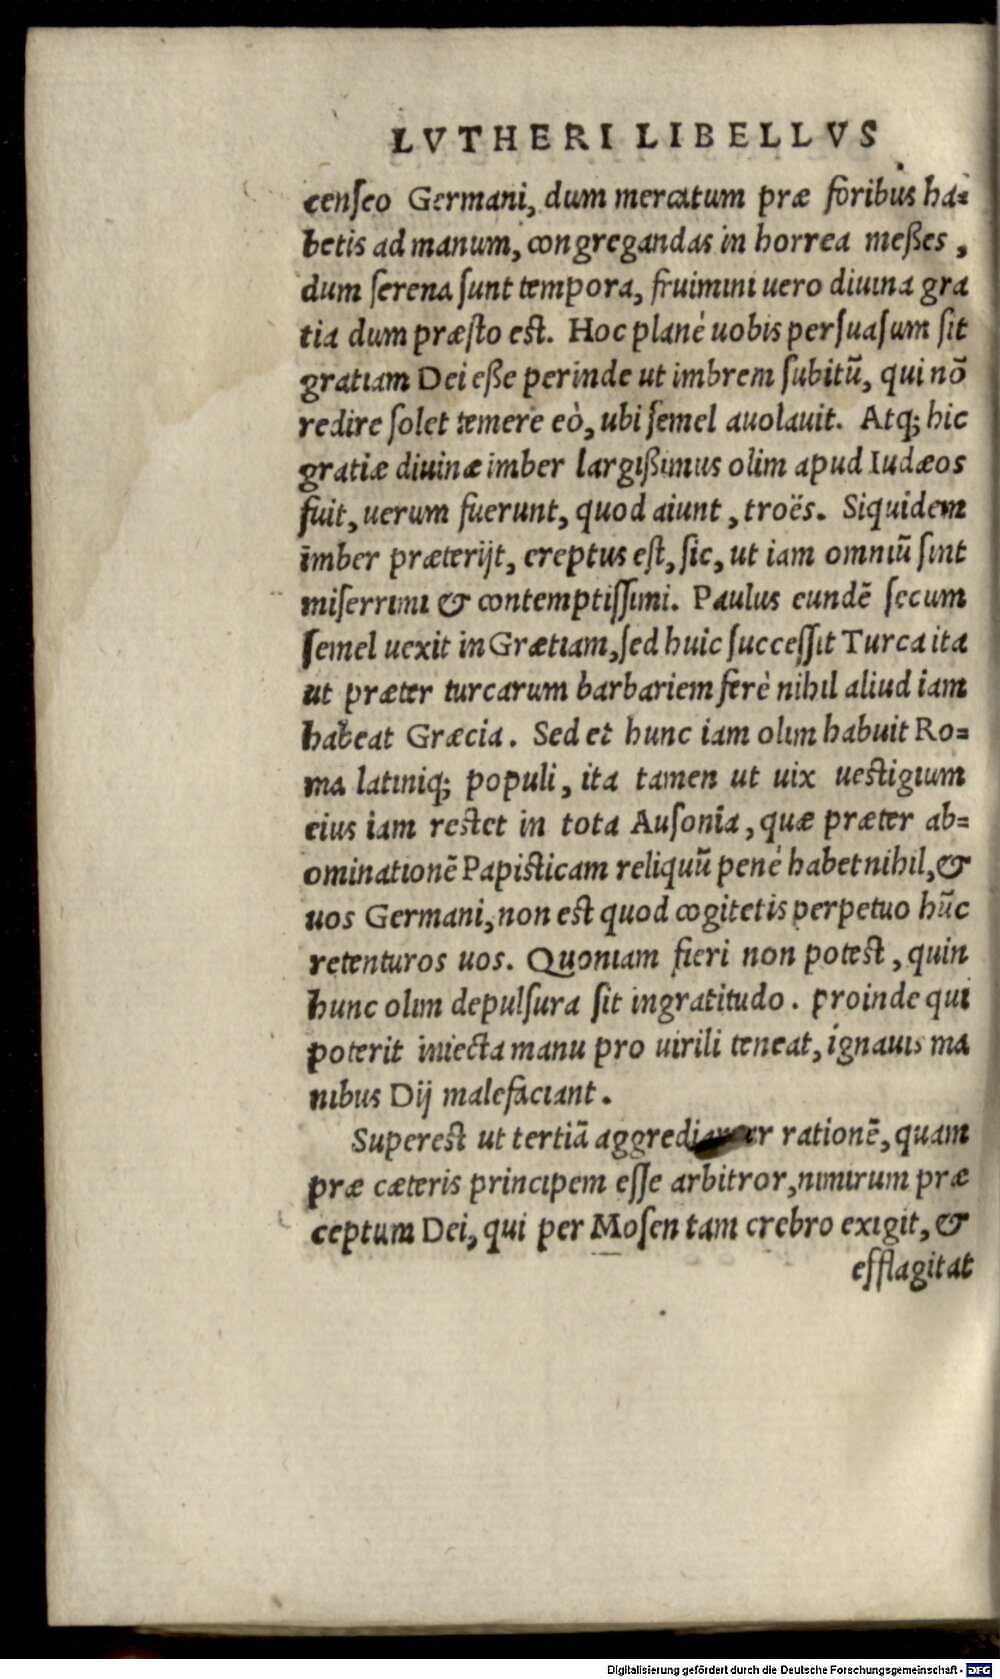 LVTHERI LIBELLVS
cenſeo Germani, dum mercatum præ foribus ha=
betis ad manum, congregandas in horrea meßes,
dum ſerena ſunt tempora, fruimini uero diuina gra
tia dum præſto eſt. Hoc planè uobis perſuaſum ſit
gratiam Dei eße perinde ut imbrem ſubitū, qui nō
redire ſolet temere eò, ubi ſemel auolauit. Atq; hic
gratiæ diuinæ imber largißimus olim apud Iudæos
fuit, uerum fuerunt, quod aiunt, troës. Siquidem
imber præterijt, ereptus eſt, ſic, ut iam omniū ſint
miſerrimi & contemptiſſimi. Paulus eundē ſecum
ſemel uexit in Grætiam, ſed huic ſucceſſit Turca ita
ut præter turcarum barbariem ferè nihil aliud iam
habeat Græcia. Sed et hunc iam olim habuit Ro=
ma latiniq; populi, ita tamen ut uix ueſtigium
eius iam reſtet in tota Auſonia, quæ præter ab=
ominationē Papiſticam reliquū penè habet nihil, &
uos Germani, non eſt quod cogitetis perpetuo hūc
retenturos uos. Quoniam fieri non poteſt, quin
hunc olim depulſura ſit ingratitudo. proinde qui
poterit iniecta manu pro uirili teneat, ignauis ma
nibus Dij malefaciant.
Supereſt ut tertiā rationē, quam
præ cæteris principem eſſe arbitror, nimirum præ
ceptum Dei, qui per Moſen tam crebro exigit, &
efflagitat
Digitalisierung gefördert durch die Deutsche Forschungsgemeinschaft - DFG